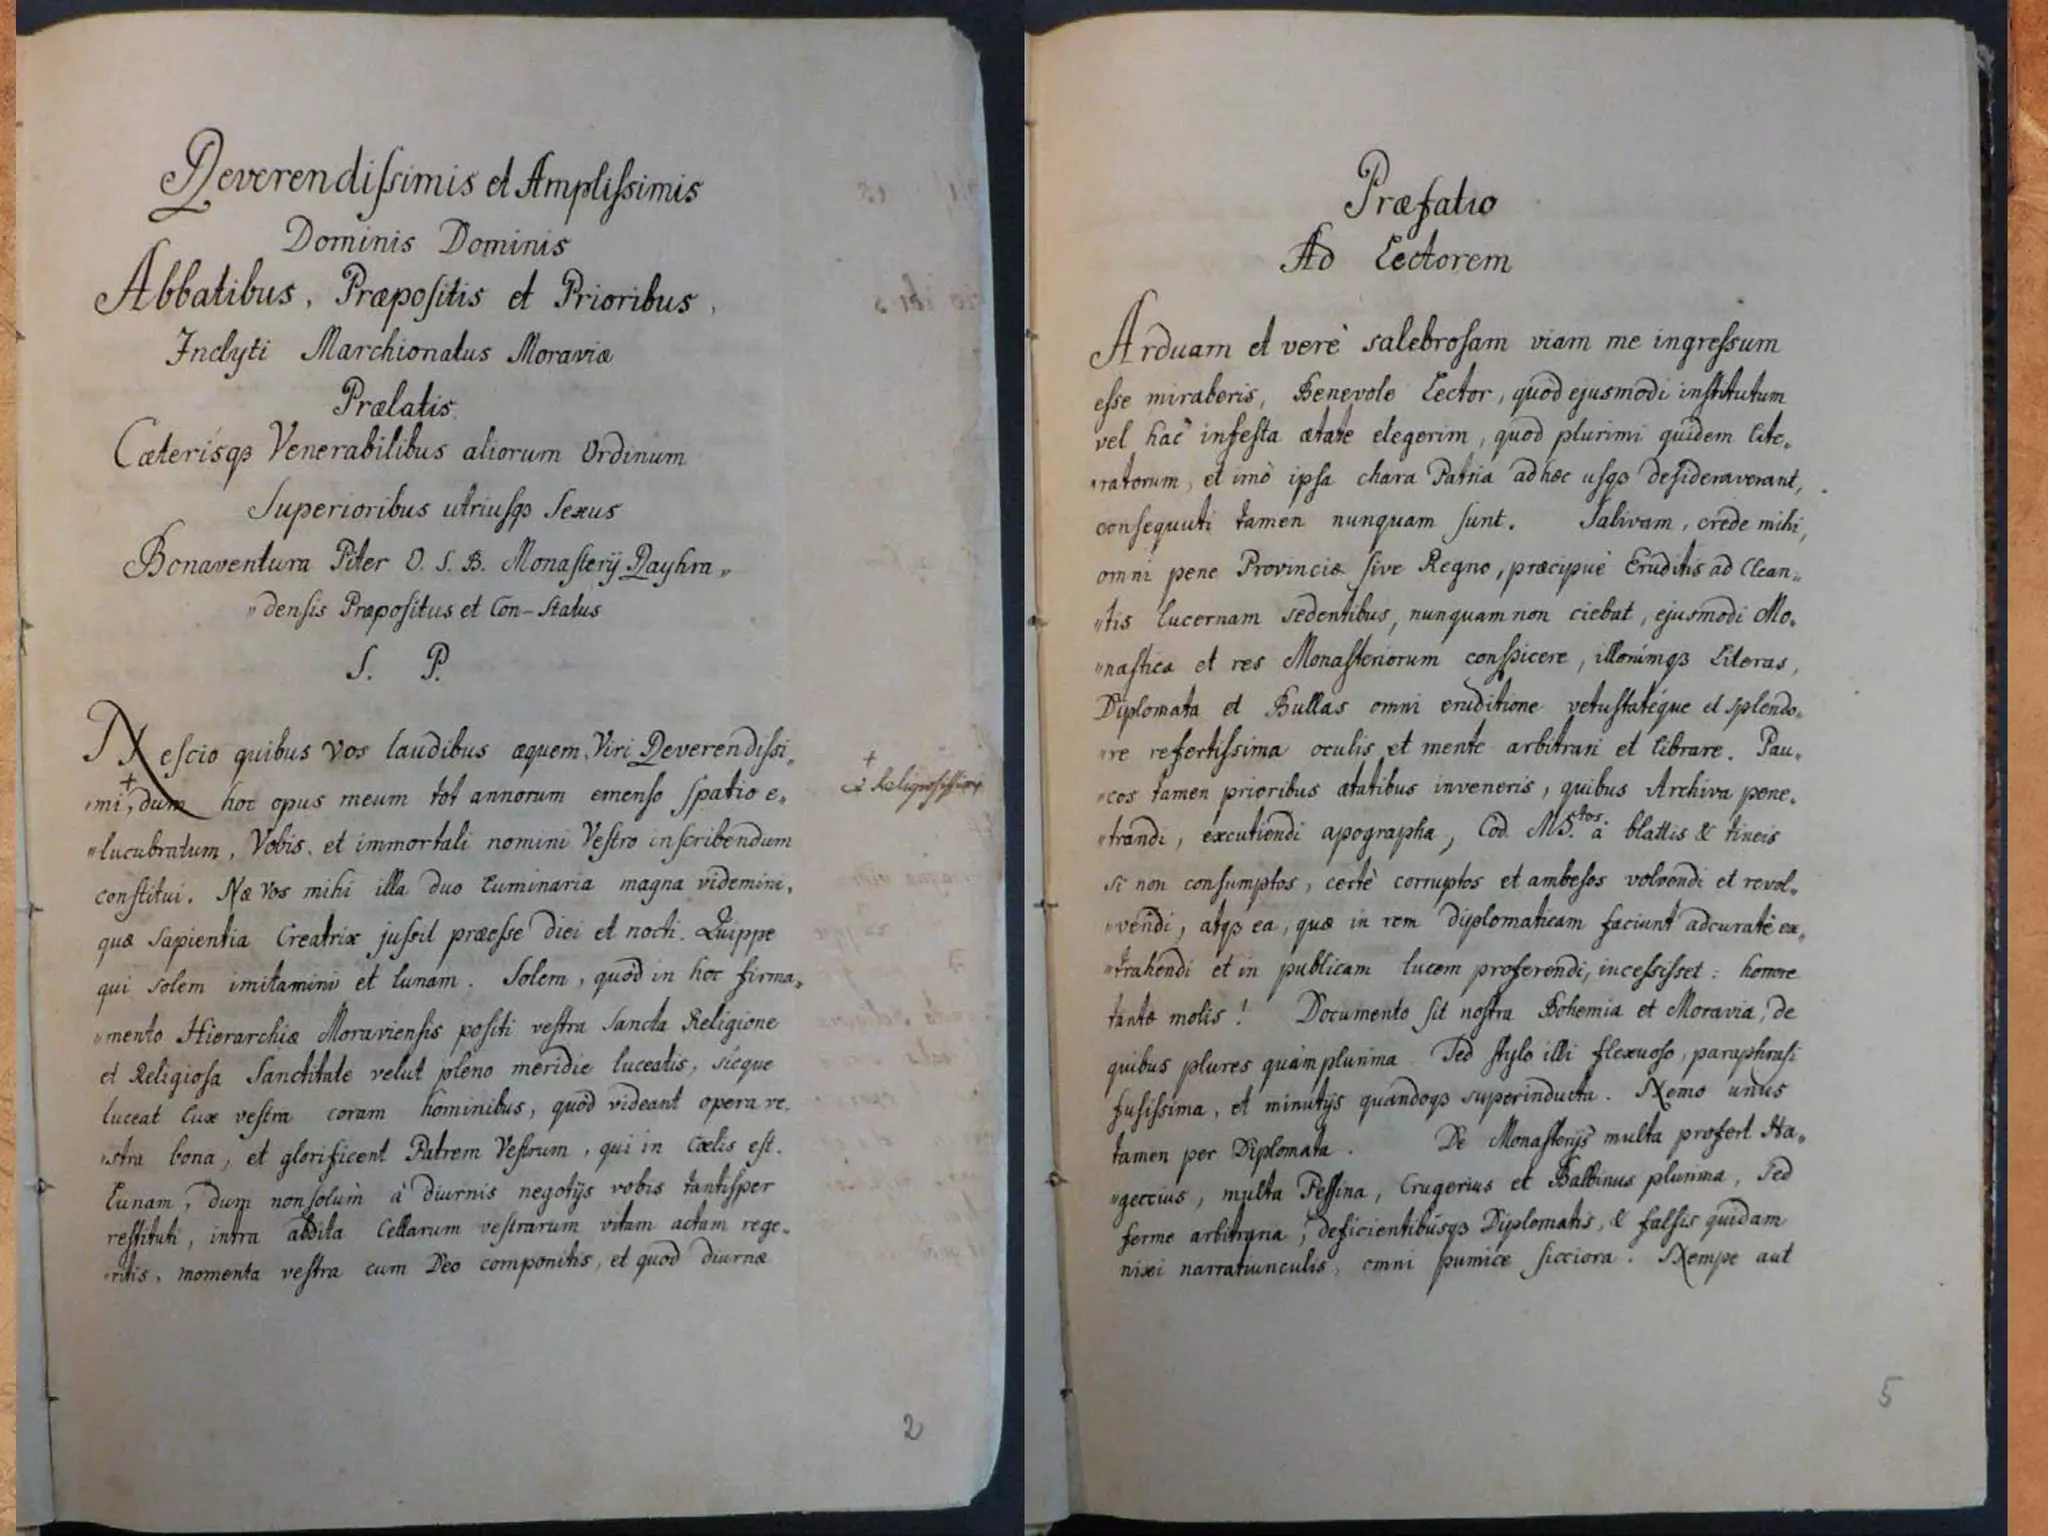 Reverendiſsimis et Ampliſsimis
Dominis Dominis
Abbatibus, Præpoſitis et Prioribus,
Inclyti Marchionatus Moraviæ
Prælatis.
Cæterisqꝫ Venerabilibus aliorum Ordinum
Superioribus utriuſqꝫ Sexus
Bonaventura Piter O. S. B. Monaſterÿ Rayhra„
„denſis Præpoſitus et Con-Status
S. P.
Neſcio quibus Vos laudibus æquem, Viri Reverendiſsi„
„mi, + dum hoc opus meum tot annorum emenſo ſpatio e„
+ et Religioſiſsimi
„lucubratum, Vobis, et immortali nomini Veſtro inſcribendum
conſtitui. Næ vos mihi illa duo Luminaria magna videmini,
quæ Sapientia Creatrix juſsit præeſse diei et nocti. Quippe
qui Solem imitamini et Lunam. Solem, quòd in hoc firma„
„mento Hierarchiæ Moravienſis poſiti veſtra Sancta Religione
et Religioſa Sanctitate velut pleno meridie luceatis, sicque
luceat Lux veſtra coram hominibus, quòd videant opera ve„
„stra bona, et glorificent Patrem Veſtrum, qui in Cœlis eſt.
Lunam, dum non ſolùm à diurnis negotÿs vobis tantiſper
reſtituti, intra abdita Cellarum veſtrarum vitam actam rege„
„ritis, momenta veſtra cum Deo componitis, et quod diurnæ
2
Præfatio
Ad Lectorem
Arduam et verè salebroſam viam me ingreſsum
eſse miraberis, Benevole Lector, quòd ejusmodi inſtitutum
vel hac infeſta ætate elegerim, quod plurimi quidem Lite„
„ratorum, et imò ipſa chara Patria adhæc uſqꝫ deſideraverant,
conſequuti tamen nunquam ſunt. Salivam, crede mihi,
omni pene Provinciæ ſive Regno, præcipuè Eruditis ad Clean„
„tis lucernam sedentibus, nunquam non ciebat, ejusmodi Mo„
„naſtica et res Monaſteriorum conſpicere, illorumqꝫ Literas,
Diplomata et Bullas omni eruditione vetuſtatéque et splendo„
„re refertiſsima oculis et mente arbitrari et librare. Pau„
„cos tamen prioribus ætatibus inveneris, quibus Archiva pene„
„trandi, excutiendi apographa, Cod. MS.ctos à blattis & tineis
si non conſumptos, certè corruptos et ambeſos volvendi et revol„
„vendi, atqꝫ ea, quæ in rem diplomaticam faciunt adcuratè ex„
„trahendi et in publicam lucem proferendi, inceſsiſset: horrore
tantæ molis! Documento ſit noſtra Bohemia et Moravia, de
quibus plures quàm plurima. Sed ſtylo illi flexuoſo, paraphraſi
fuſiſsima, et minutÿs quandoqꝫ superinducta. Nemo unus
tamen per Diplomata. De Monaſterÿs multa profert Ha„
„geccius, multa Peſsina, Crugerius et Balbinus plurima, Sed
ferme arbitraria, deficientibúsqꝫ Diplomatis, & falſis quidam
nixi narratiunculis, omni pumice ſicciora. Nempe aut
5